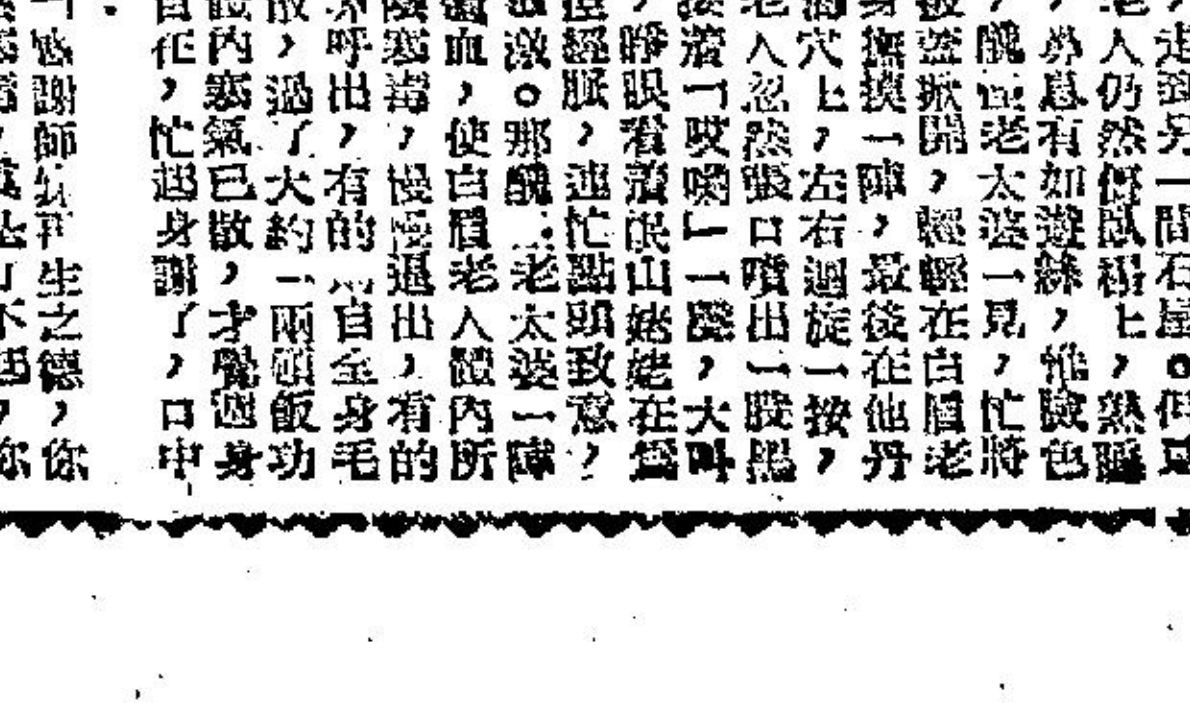 走到另一間石屋。但見
老人仍然僵臥榻上，熟睡
，鼻息有如遊絲，惟臉色
，醜面老太婆一見，忙將
被蓋掀開，輕輕在白眉老
身撫摸一陣，最後在他丹
穴上，左右迴旋一按，
老人忽然張口噴出一股黑
着「哎喲」一聲，大叫
，睜眼看着岷山姥姥在爲
經脈，連忙點頭致意，
激。那醜 老太婆一陣
血，使白眉老人體內所
陰寒毒，慢慢退出，有的
呼出，有的 自全身毛
散，過了大約一兩頓飯功
體內寒氣已散，才覺週身
自在，忙起身謝了，口中
感謝師 再生之德，你
不 ，你